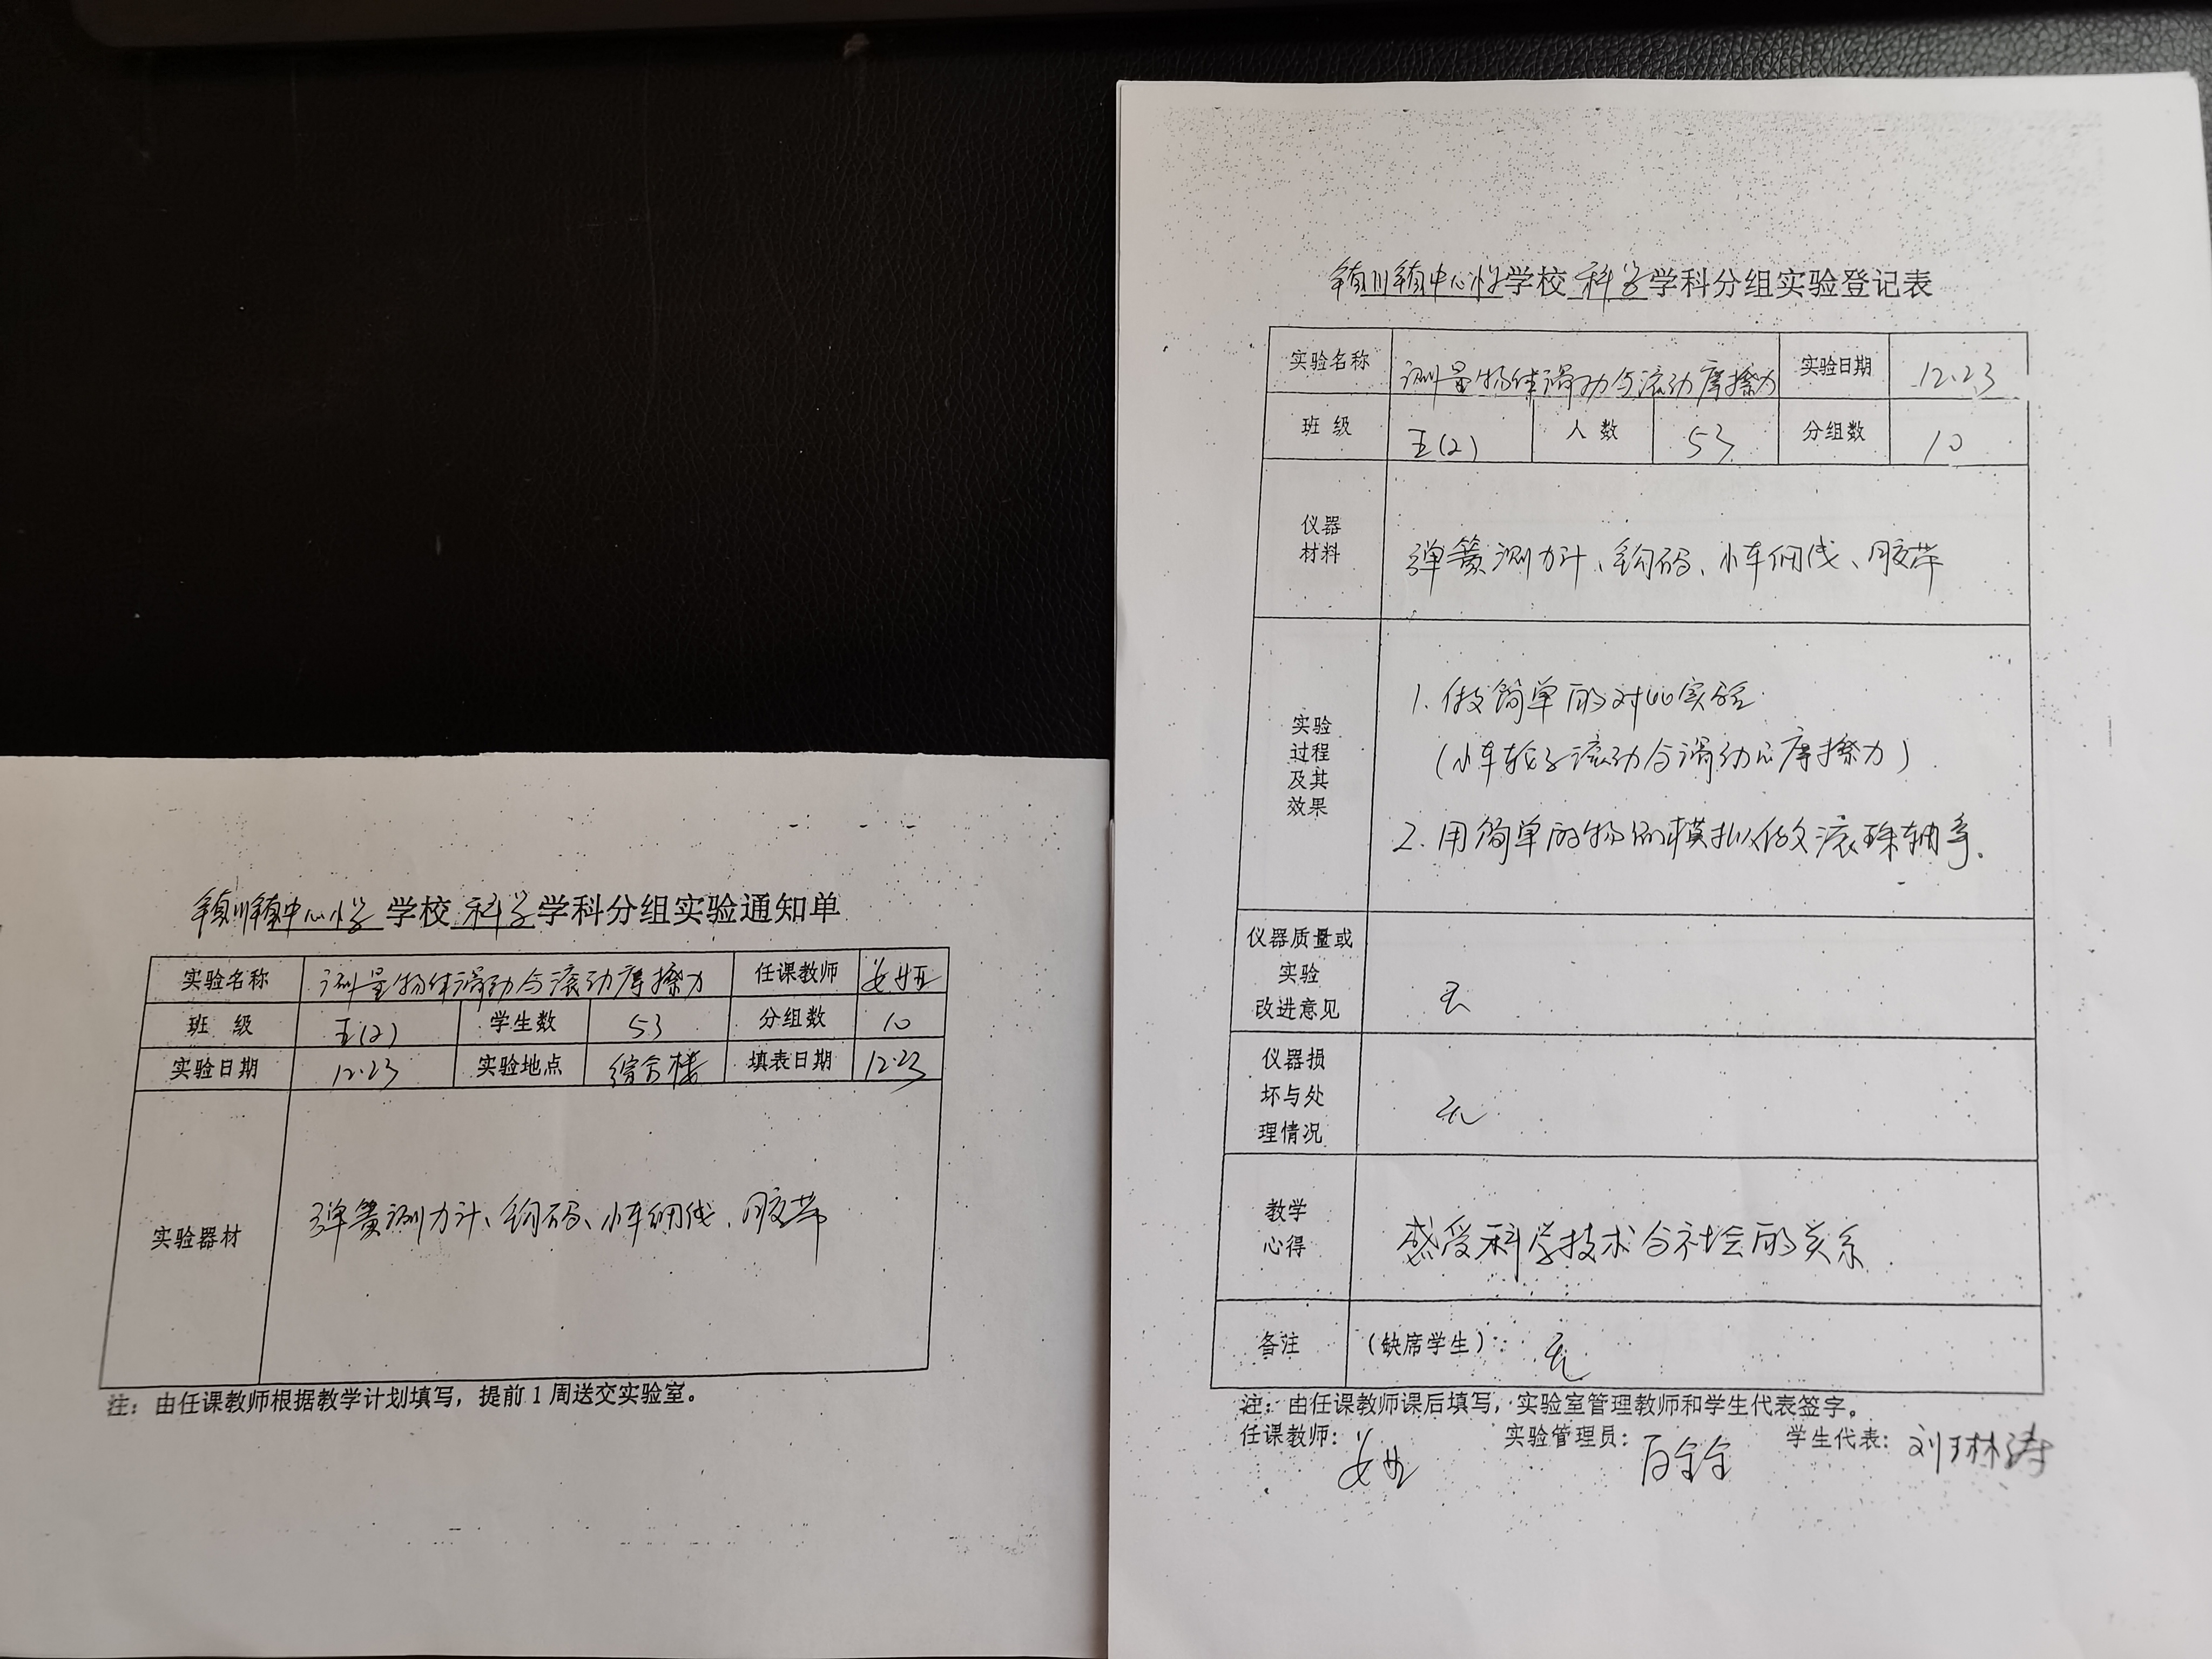 镇中心小学 学校 科学 学科分组实验通知单
实验名称 测量物体滑动与滚动摩擦力 任课教师
班 级 五(2) 学生数 53 分组数 10
实验日期 12.23 实验地点 综合楼 填表日期 12.23
实验器材 弹簧测力计、钩码、小车细线、胶带
注：由任课教师根据教学计划填写，提前1周送交实验室。
镇中心小学 学校 科学 学科分组实验登记表
实验名称 测量物体滑动与滚动摩擦力 实验日期 12.23
班 级 五(2) 人 数 53 分组数 10
仪器
材料
弹簧测力计、钩码、小车细线、胶带
实验
过程
及其
效果
1. 做简单的对比实验
(小车轮子滚动与滑动的摩擦力)
2. 用简单的物体模拟做滚珠轴承.
仪器质量或
实验
改进意见
无
仪器损
坏与处
理情况
无
教学
心得
感受科学技术与社会的关系
备注 (缺席学生)： 无
注：由任课教师课后填写，实验室管理教师和学生代表签字。
任课教师： 实验管理员： 学生代表：刘琳涛